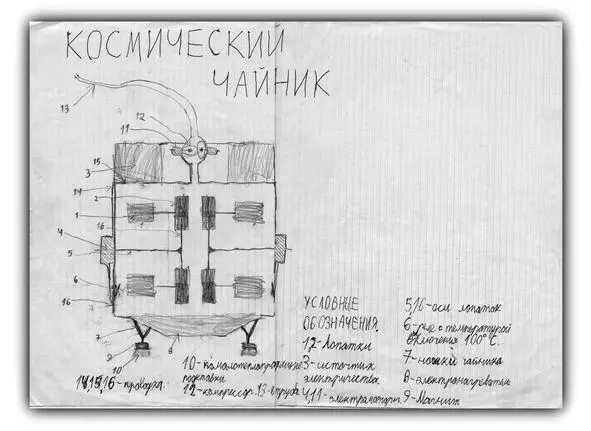 КОСМИЧЕСКИЙ
ЧАЙНИК
13
12
11
15
3
14
2
1
16
4
5
6
16
7
9
8
10
УСЛОВНЫЕ
ОБОЗНАЧЕНИЯ.
1,2-Лопатки
3-источник
электричества
4,11-электромоторы.
5,16-оси лопаток
6-реле с температурой
включения 100°С.
7-ножки чайника
8-электронагреватель
9-Магнит
10-
подставки
14,15,16-провода.
12-компрессор. 13-труба